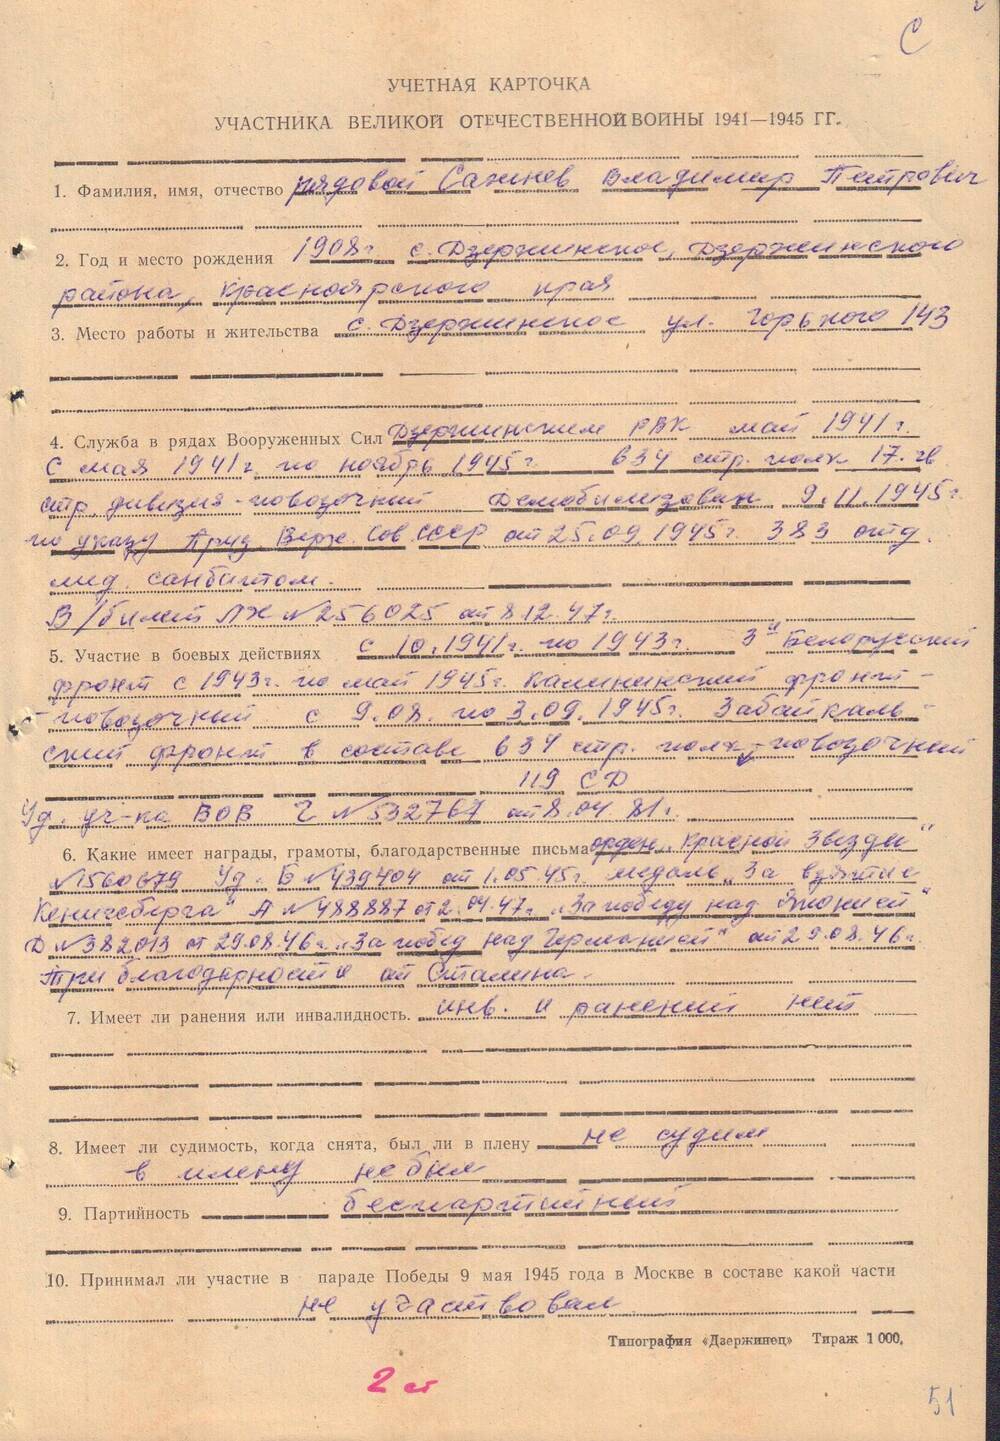 С
УЧЕТНАЯ КАРТОЧКА
УЧАСТНИКА ВЕЛИКОЙ ОТЕЧЕСТВЕННОЙ ВОЙНЫ 1941—1945 ГГ.
1. Фамилия, имя, отчество рядовой Сажнев Владимир Петрович
2. Год и место рождения 1908г. с. Дзержинское, Дзержинского
района, Красноярского края
3. Место работы и жительства с. Дзержинское ул. Горького 143
4. Служба в рядах Вооруженных Сил Дзержинским РВК май 1941 г.
С мая 1941г. по ноябрь 1945г. 634 стр. полк 17. гв
стр. дивизия - повозочный Демобилизован 9.11.1945г.
по указу През. Верх. Сов. СССР от 25.09.1945г. 383 отд.
мед. санбатом.
В/билет ЛХ №256025 от 8.12.47г.
5. Участие в боевых действиях с 10.1941г. по 1943г. 3й Белорусский
фронт с 1943г. по май 1945г. Калининский фронт -
- повозочный с 9.08. по 3.09.1945г. Забайкаль-
ский фронт в составе 634 стр. полк, - повозочный
119 СД
Уд. уч-ка ВОВ Г №532767 от 8.04.81г.
6. Какие имеет награды, грамоты, благодарственные письма орден „Красной Звезды"
№1560679 Уд. Б №439404 от 1.05.45г. медаль „За взятие
Кенигсберга" А №488887 от 2.04.47г. „За победу над Японией"
Д №382013 от 29.08.46г. „За побед над Германией" от 29.08.46г.
Три благодарности от Сталина.
7. Имеет ли ранения или инвалидность. инв. и ранений нет
8. Имеет ли судимость, когда снята, был ли в плену не судим
в плену не был
9. Партийность беспартийный
10. Принимал ли участие в параде Победы 9 мая 1945 года в Москве в составе какой части
не участвовал
Типография «Дзержинец» Тираж 1 000.
2 ст
51